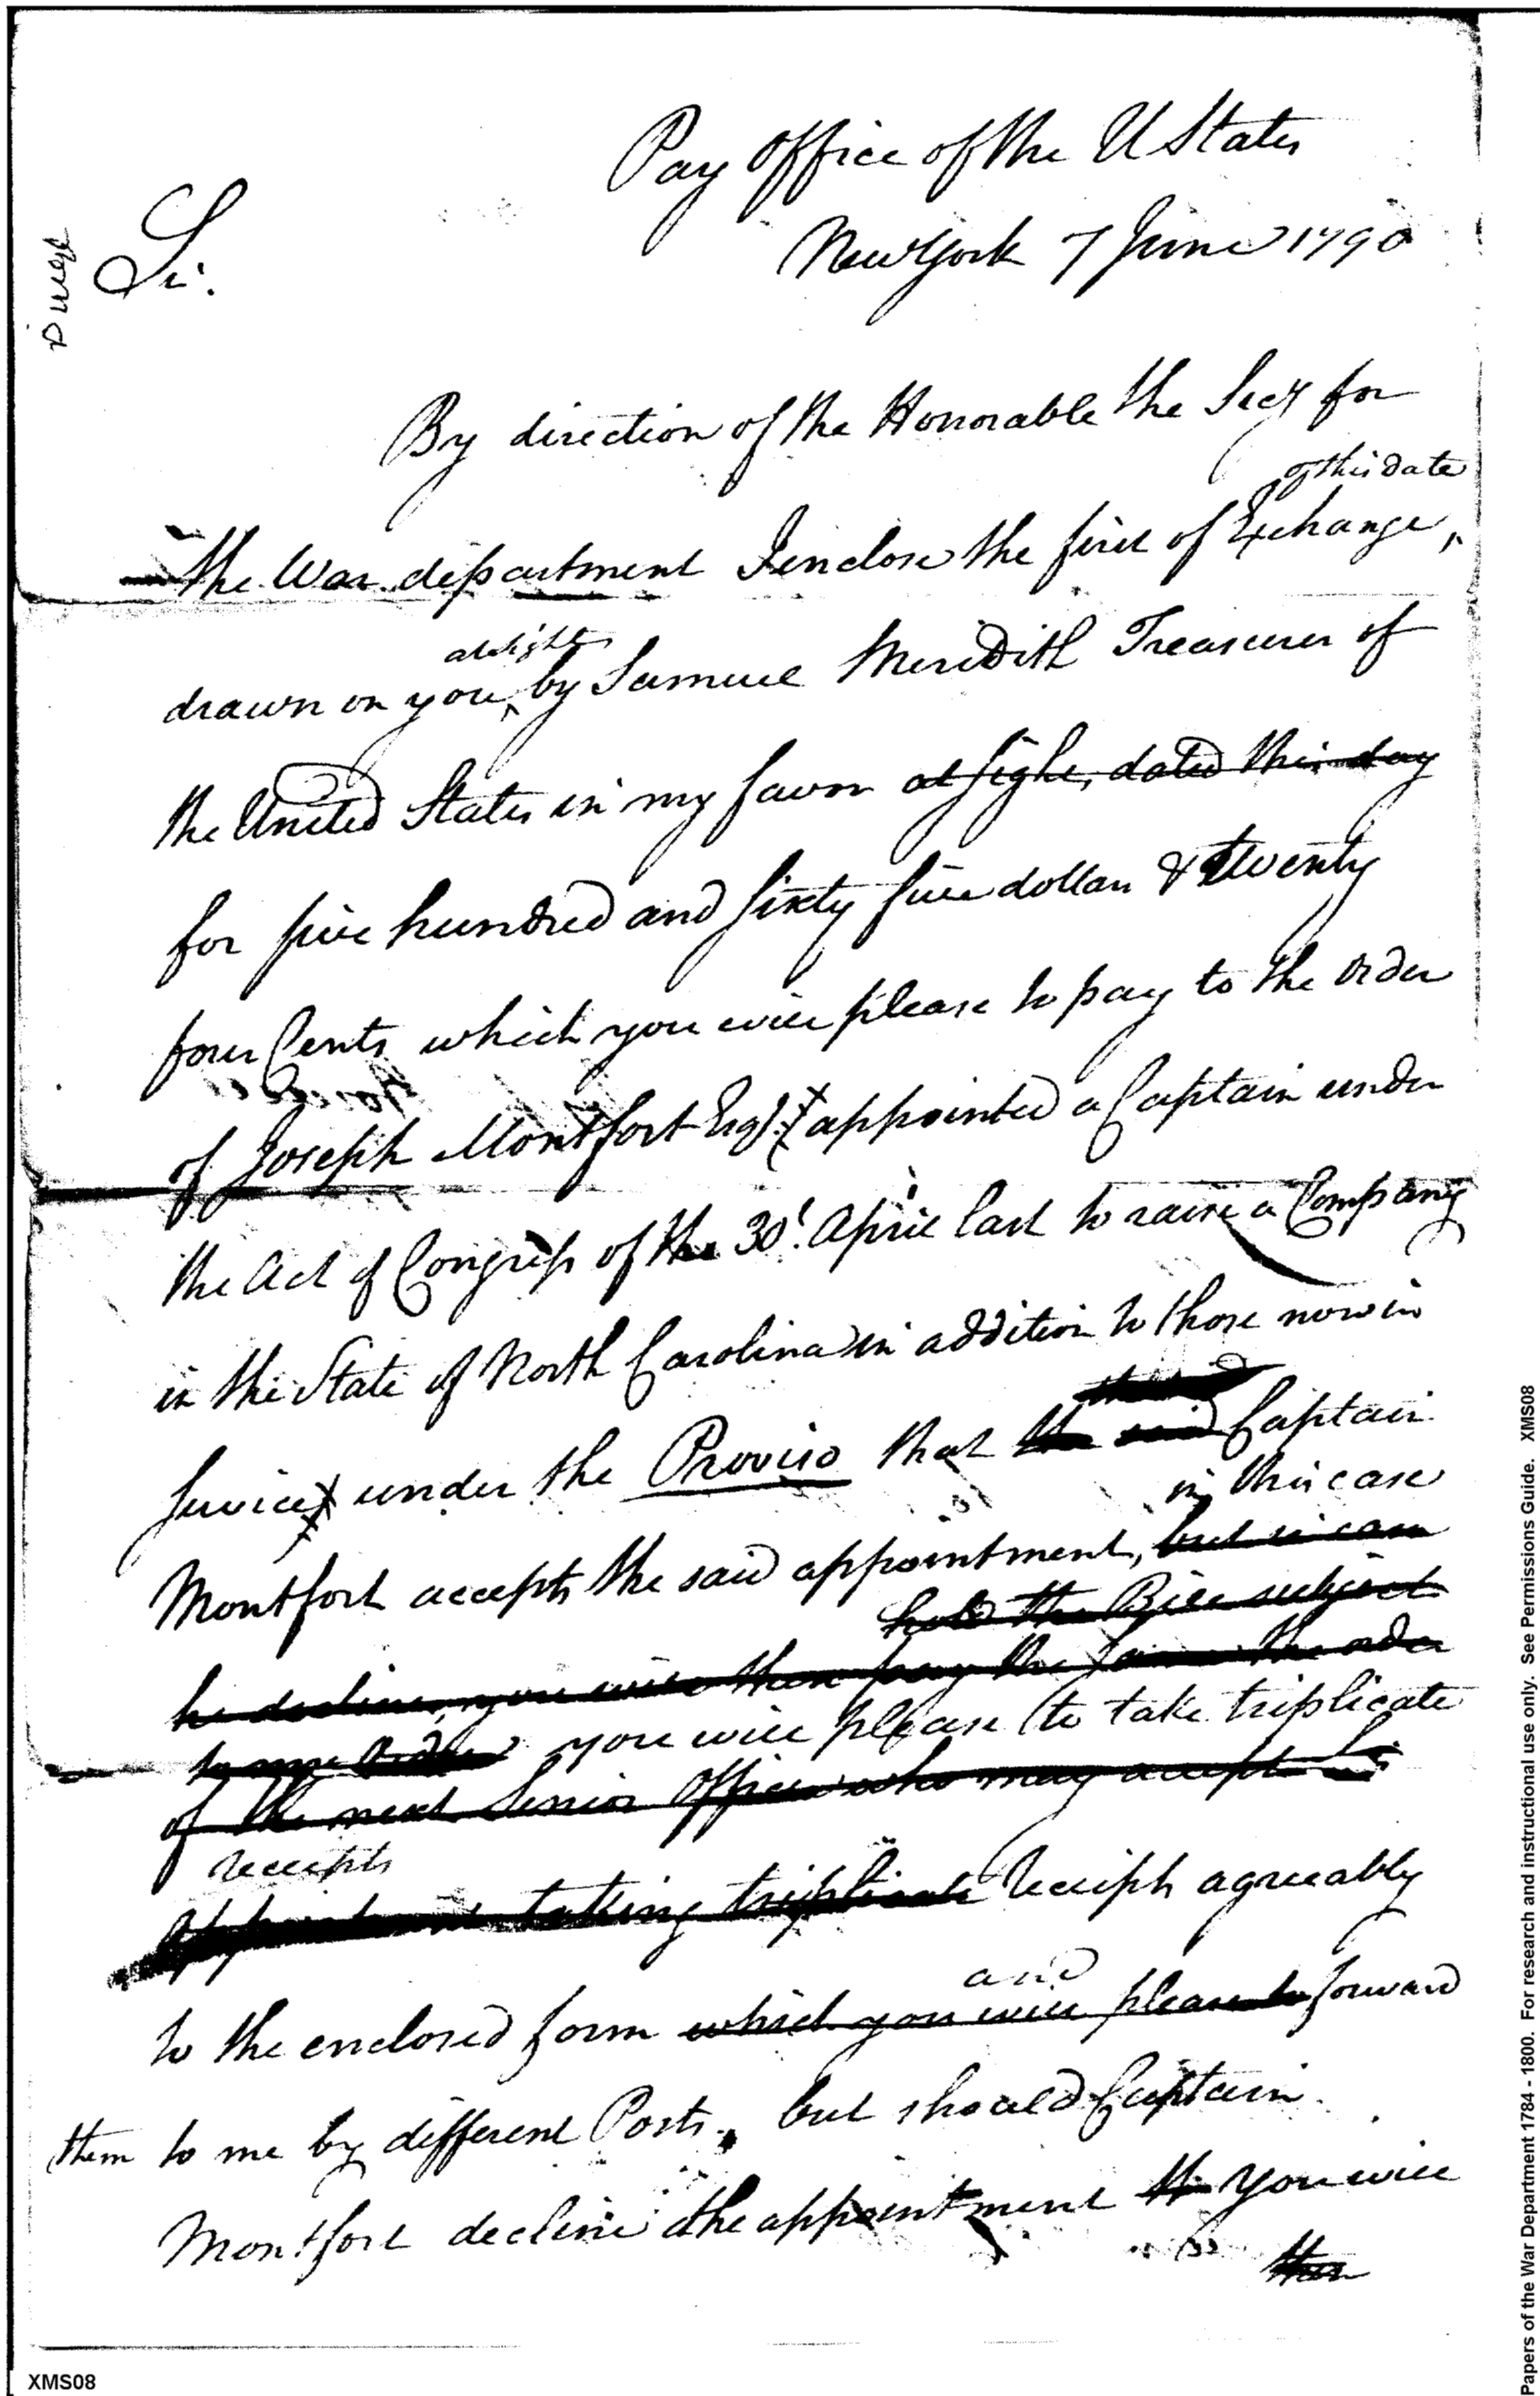 Pay Office of the U States
New York 7 June 1790
Sir.
By direction of the Honorable the Secy for
of this date
the War department I enclose the first of Exchange,
at sight
drawn on you, by Samuel Meridith Treasurer of
the United States in my favor at sight, dated this day
for five hundred and sixty five dollars & twenty
four Cents which you will please to pay to the order
of Joseph Montfort Esqr. appointed a Captain under
the Act of Congress of the 30t. April last to raise a Company
in the State of North Carolina in addition to those now in
Service under the Proviso that the said Captain
in this case
Montfort accepts the said appointment, but in case
hold the Bill subject
he decline, you will then pay the same the order
to my order you will please to take triplicate
of the next Senior Officer who may accept
receipts
appointment taking triplicate Receipts agreeably
and
to the enclosed form which you will please to forward
them to me by different Posts, but should Captain
Montfort decline the appointment th you will
then
XMS08
Papers of the War Department 1784 - 1800. For research and instructional use only. See Permissions Guide. XMS08